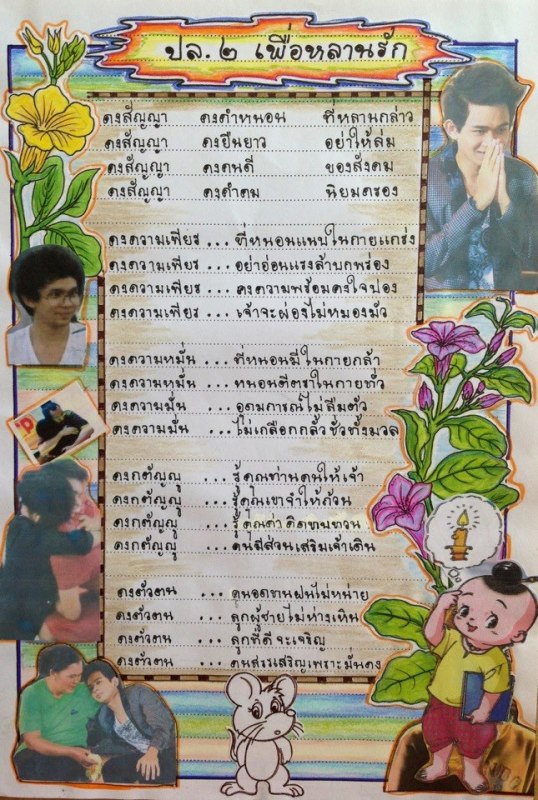 ปล.๒ เพื่อหลานรัก
คงสัญญา คงคำหนอน ที่หลานกล่าว
คงสัญญา คงยืนยาว อย่าให้ล่ม
คงสัญญา คงคนดี ของสังคม
คงสัญญา คงคำคม นิยมครอง
คงความเพียร ... ที่หนอนแนบในกายแกร่ง
คงความเพียร ... อย่าอ่อนแรงล้าบกพร่อง
คงความเพียร ... คงความพร้อมคงใจปอง
คงความเพียร ... เจ้าจะผ่องไม่หมองมัว
คงความหมั่น ... ที่หนอนมีในกายกล้า
คงความหมั่น ... หนอนตีตราในกายทั่ว
คงความมั่น ... อุดมการณ์ไม่ลืมตัว
คงความมั่น ... ไม่เกลือกกลั้วชั่วทั้งมวล
คงกตัญญู ... รู้คุณท่านคนให้เจ้า
คงกตัญญู ... รู้คุณเขาจำให้ถ้วน
คงกตัญญู ... รู้คุณค่า คิดทบทวน
คงกตัญญู ... คนมีส่วนเสริมเจ้าเดิน
คงตัวตน ... คนอดทนฝนไม่หน่าย
คงตัวตน ... ลูกผู้ชายไม่ห่างเหิน
คงตัวตน ... ลูกที่ดีจะเจริญ
คงตัวตน ... คนสรรเสริญเพราะมั่นคง